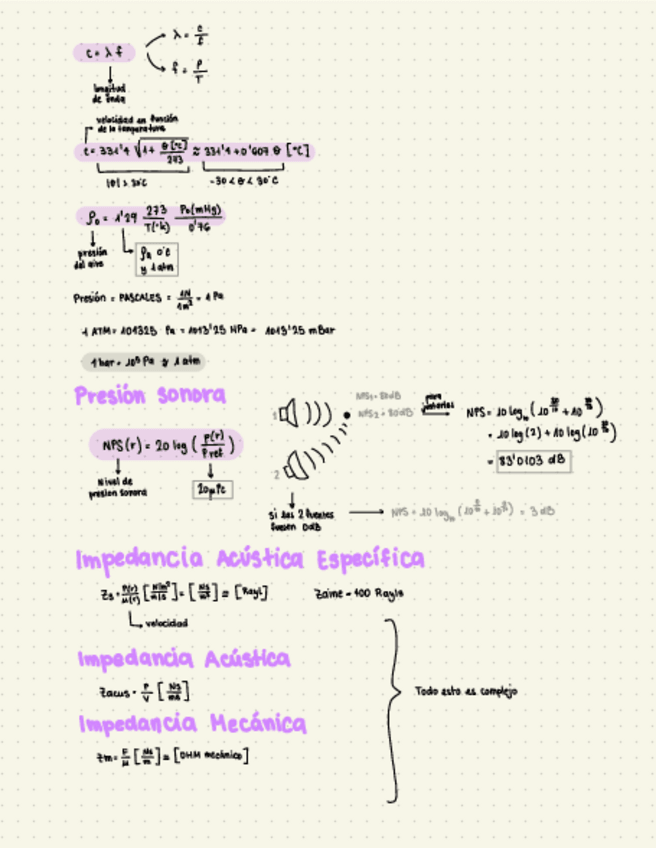 c = λ f
λ = c/f
f = P/T
longitud de onda
velocidad en función de la temperatura
c = 331'4 √(1 + θ[°C]/273) ≈ 331'4 + 0'607 θ [°C]
|θ| > 30°C
-30 < θ < 30°C
ρ₀ = 1'29 273/T(°k) P₀(mHg)/0'76
presión del aire
ρ₀ 0°C y 1 atm
Presión = PASCALES = 1N/1m² = 1 Pa
1 ATM = 101325 Pa = 1013'25 HPa = 1013'25 mBar
1 bar = 10⁵ Pa ≈ 1 atm
Presión sonora
NPS(r) = 20 log (P(r)/Pref)
Nivel de presion sonora
20 μPa
1
2
NPS1 = 80dB
NPS2 = 80dB
para juntarlos
NPS = 10 log₁₀ (10^(80/10) + 10^(80/10))
= 10 log (2) + 10 log (10^(80/10))
= 83'0103 dB
Si las 2 fuentes fuesen 0dB
NPS = 10 log₁₀ (10^(0/10) + 10^(0/10)) = 3 dB
Impedancia Acústica Específica
Zs = P(r)/μ(r) [N/m²/m/s] = [NS/m³] = [Rayl]
Zaire = 400 Rayls
velocidad
Impedancia Acústica
Zacus = P/V [NS/m5]
Impedancia Mecánica
Zm = F/μ [NS/m] = [OHM mecánico]
Todo esto es complejo